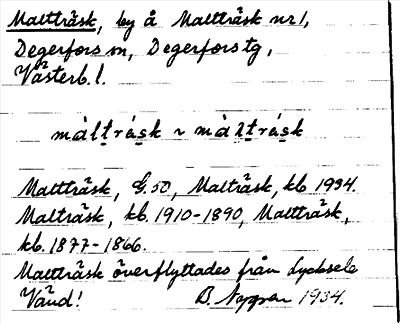 Maltträsk, by å Maltträsk nr 1,
Degerfors sn, Degerfors tg,
Västerb. l.
màltrá̀sk ~ màltrá̀sk
Maltträsk, G.50, Malträsk, kb. 1934.
Malträsk, kb. 1910-1890, Maltträsk,
kb. 1877-1866.
Maltträsk överflyttades från Lycksele
Vänd! B. Nygren 1934.